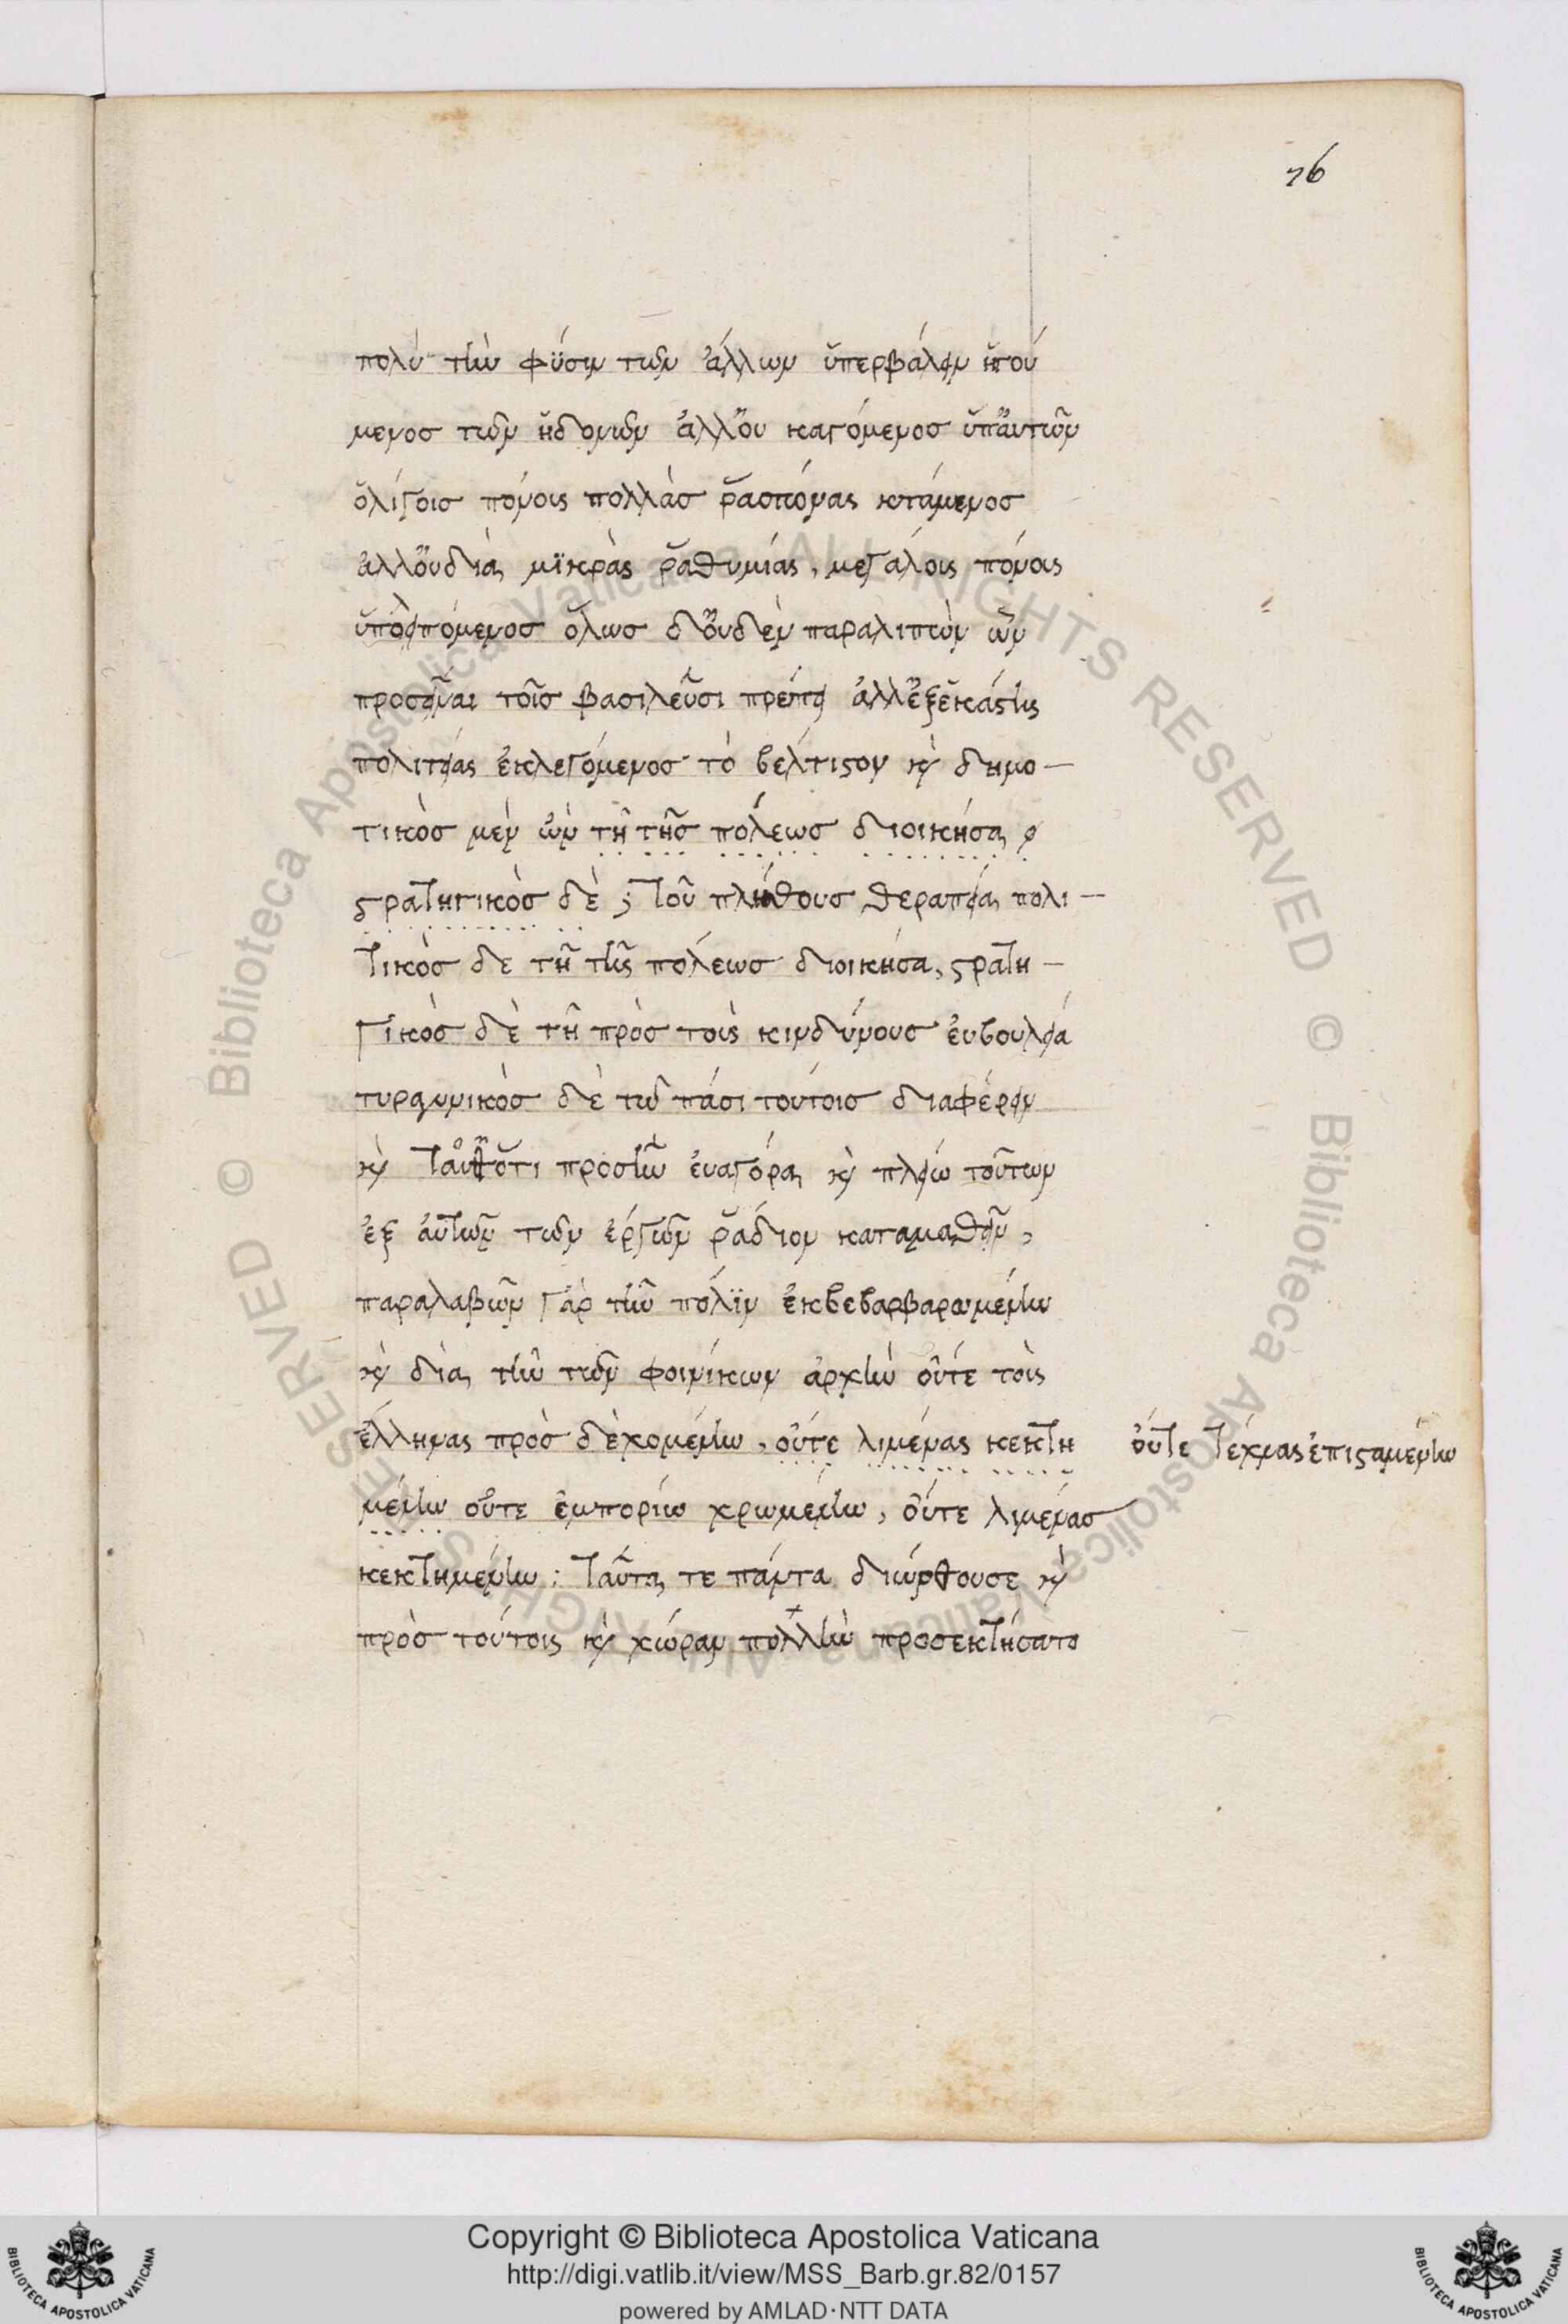 76
πολὺ τὴν φύσιν τῶν ἄλλων ὑπερβάλειν ἡγού
μενος τῶν ἡδονῶν ἀλλ' οὐκ ἀγόμενος ὑπ' αὐτῶν
ὀλίγοις πόνοις πολλὰς ῥαστώνας κτώμενος
ἀλλ' οὐ διὰ μϊκρὰς ῥαθυμίας, μεγάλοις πόνοις
ὑπολειπόμενος ὅλως δ' οὐδὲν παραλιπὼν ὧν
προσεῖναι τοῖς βασιλεῦσι πρέπει ἀλλ' ἐξ ἑκάστης
πολιτείας ἐκλεγόμενος τὸ βέλτιστον καὶ δημο-
τικὸς μὲν ὢν τῆ τῆς πόλεως διοικήσει
στρατηγικὸς δὲ τοῦ πλήθους θεραπεία πολι-
τικὸς δε τῆ τῆς πόλεως διοικήσει, στρατη-
γικὸς δὲ τῆ πρὸς τοὺς κινδύνους εὐβουλία
τυραννικὸς δὲ τῶ πᾶσι τούτοις διαφέρειν
καὶ ταῦθ' ὅτι προσῆν εὐαγόρα καὶ πλείω τούτων
ἐξ αὐτῶν τῶν ἔργων ῥάδιον καταμαθεῖν,
παραλαβὼν γὰρ τὴν πόλϊν ἐκβεβαρβαρωμένην
καὶ διὰ τὴν τῶν φοινίκων ἀρχὴν οὔτε τοὺς
ἕλληνας προσδεχομένην, οὔτε λιμένας κεκτη
οὔτε τέχνας ἐπισταμένην
μένην οὔτε ἐμπορίω χρωμένην, οὔτε λιμένας
κεκτημένην: ταῦτα τε πάντα διώρθουσε καὶ
πρὸς τούτοις καὶ χώραν πολλὴν προσεκτήσατο
Copyright © Biblioteca Apostolica Vaticana
http://digi.vatlib.it/view/MSS_Barb.gr.82/0157
powered by AMLAD·NTT DATA